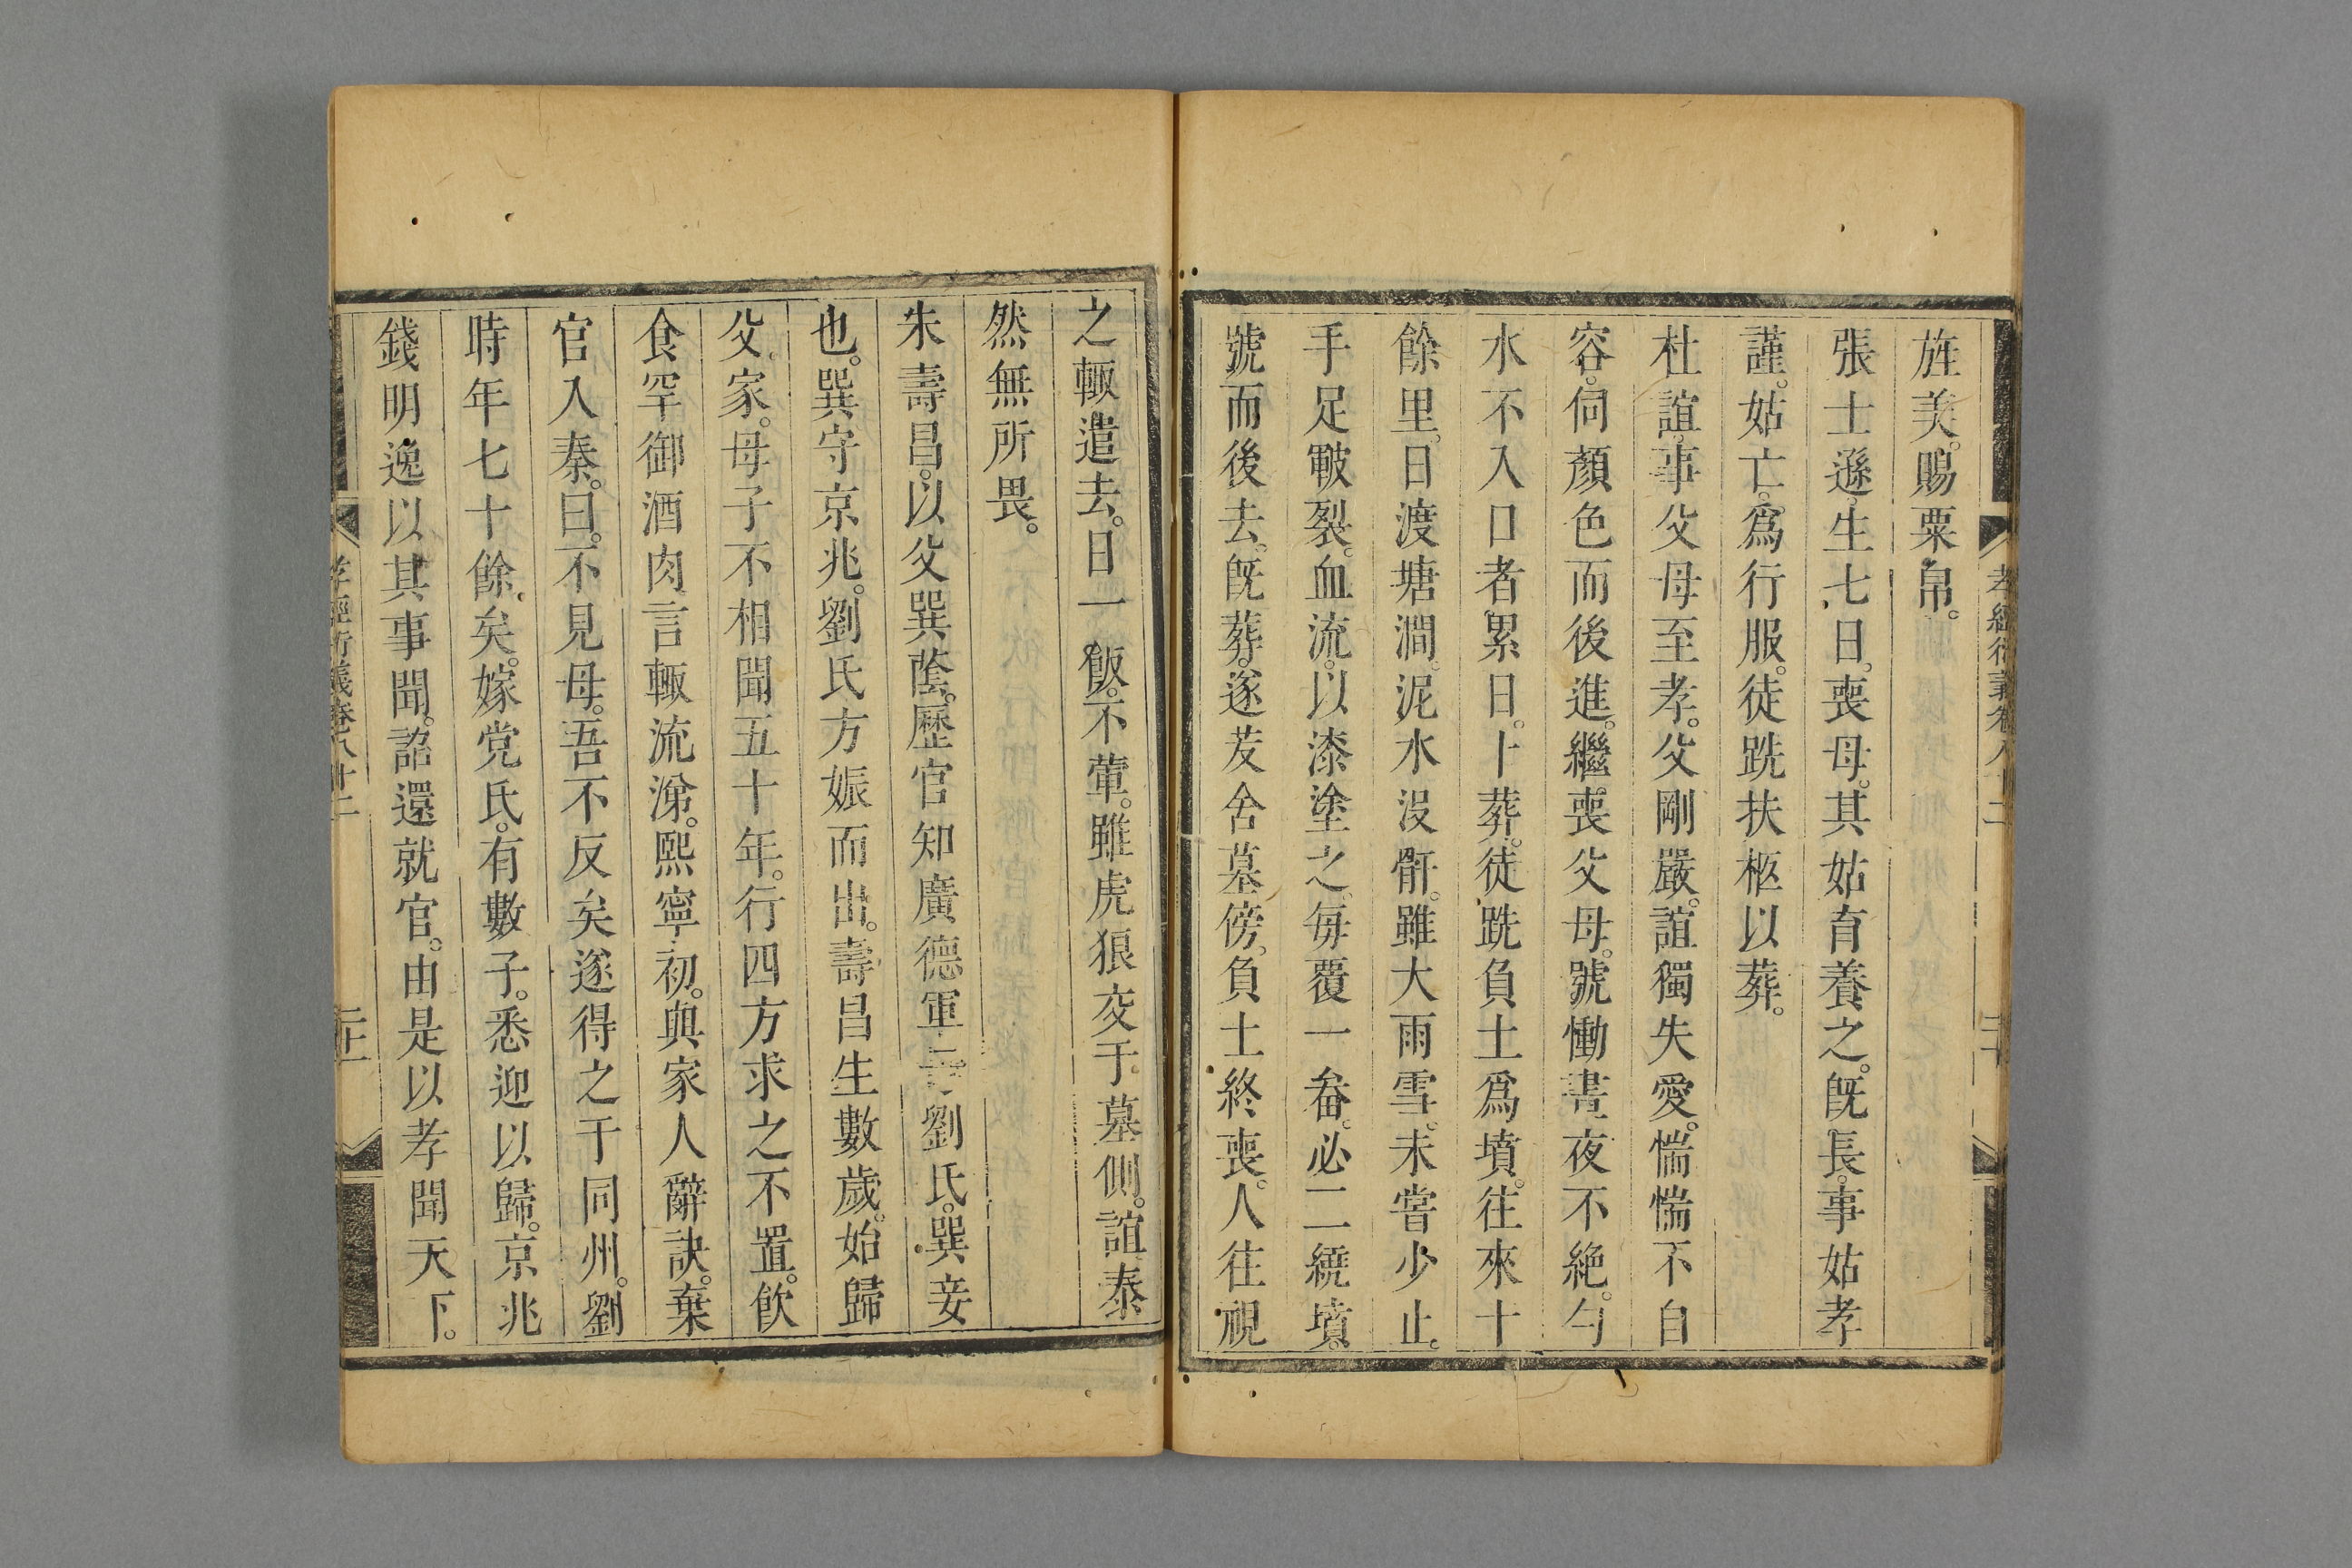 旌美。賜粟帛。
張士遜。生七日。喪母。其姑育養之。旣長。事姑孝
謹。姑亡。爲行服。徒跣扶柩以葬。
杜誼。事父母至孝。父剛嚴。誼獨失愛。惴惴不自
容。伺顏色而後進。繼喪父母。號慟晝夜不絶。勺
水不入口者累日。卜葬。徒跣負土爲墳。往來十
餘里。日渡塘澗。泥水沒骭。雖大雨雪。未嘗少止。
手足皸裂。血流。以漆塗之。每覆一畚。必二繞墳。
號而後去。旣葬。遂茇舍墓傍。負土終喪。人往視
孝經衍義卷八十二
二十
之輒遣去。日一飯。不葷。雖虎狼交于墓側。誼泰
然無所畏。
朱壽昌。以父巽蔭。歷官知廣德軍劉氏。巽妾
也。巽守京兆。劉氏方娠而出。壽昌生數歲。始歸
父家。母子不相聞五十年。行四方求之不置。飮
食罕御酒肉言輒流涕。熙寧初。與家人辭訣。棄
官入秦。曰。不見母。吾不反矣遂得之于同州。劉
時年七十餘矣。嫁党氏。有數子。悉迎以歸。京兆
錢明逸以其事聞。詔還就官。由是以孝聞天下。
孝經衍義卷八十二
二十一